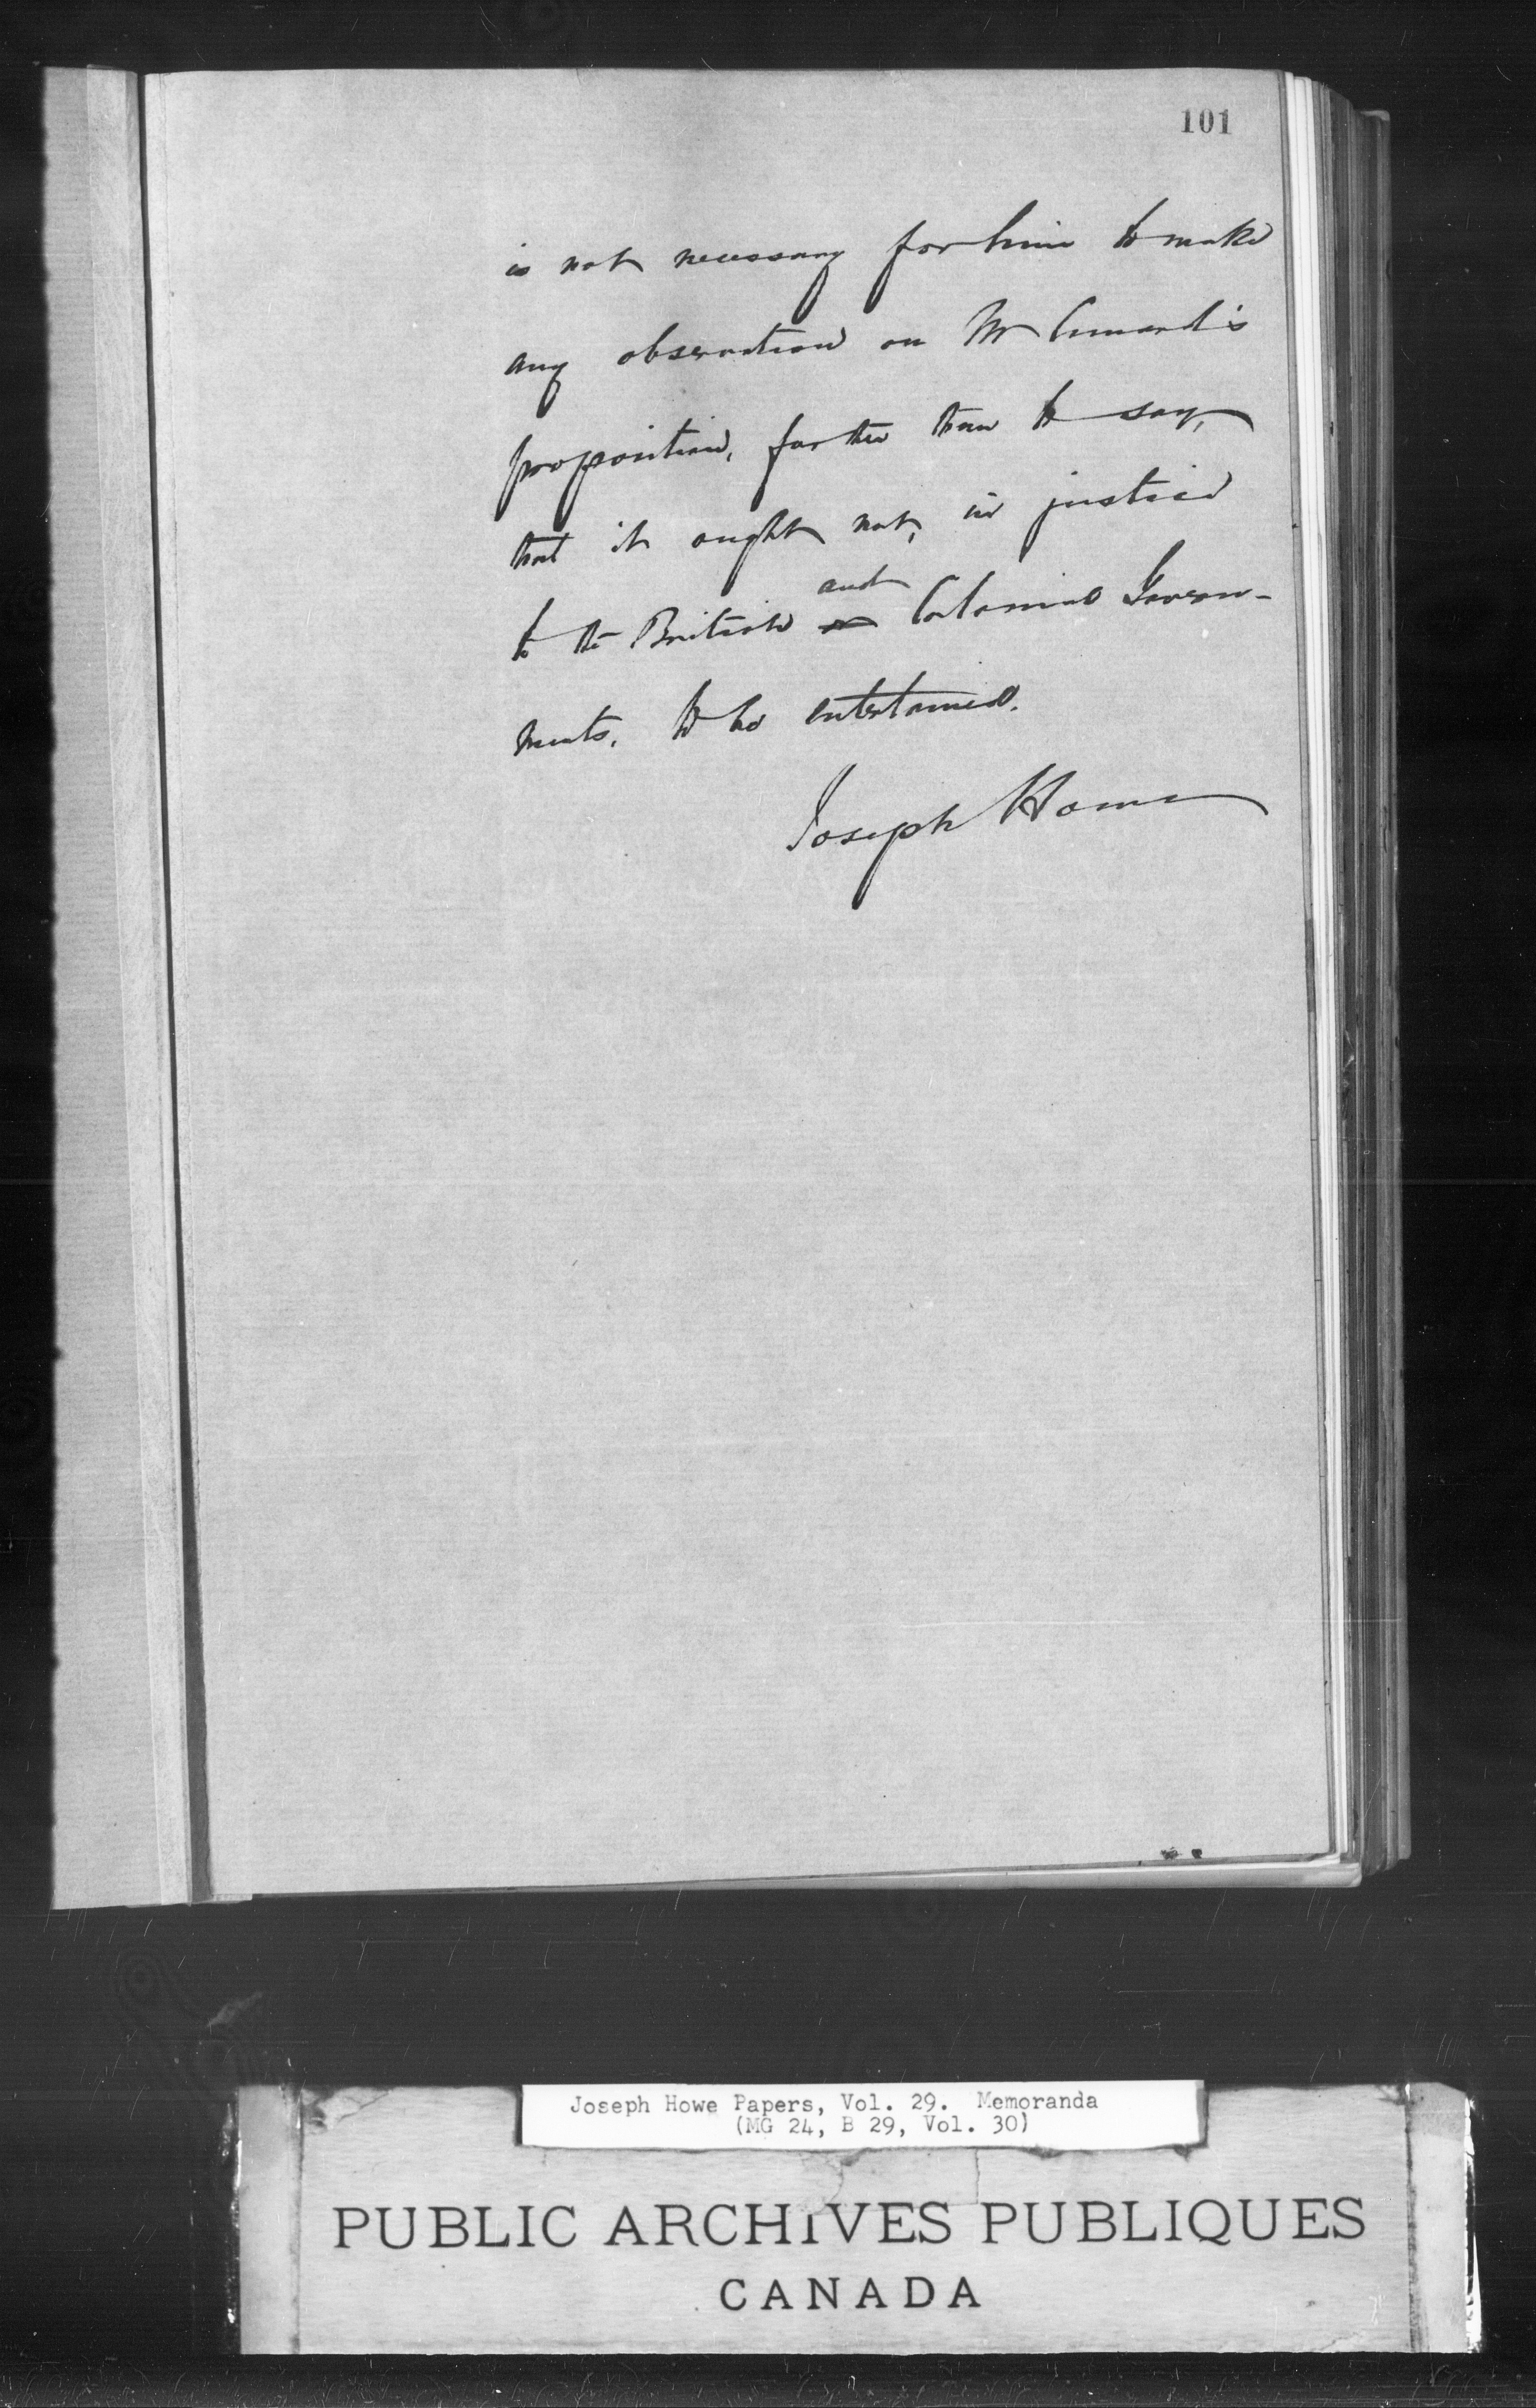 101
is not necessary for him to make
any observation on Mr Cunard's
proposition, further than to say,
that it ought not, in justice
and
to the British or Colonial Govern-
ments, to be entertained.
Joseph Howe
Joseph Howe Papers, Vol. 29. Memoranda
(MG 24, B 29, Vol. 30)
PUBLIC ARCHIVES PUBLIQUES
CANADA